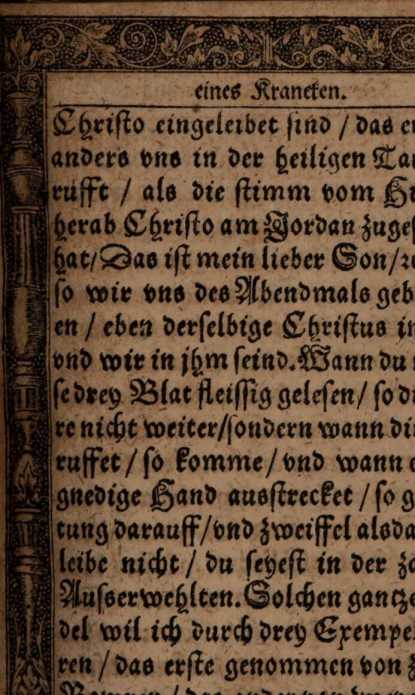 eines Krancken.
Christo eingeleibet sind / das
anders vns in der heiligen
rufft / als die stimm vom
herab Christo am Jordan
hat/ Das ist mein lieber Son/
so wir vns des Abendmals
en / eben derselbige Christus
vnd wir in jhm seind. Wann du
se drey Blat fleissig gelesen/ so
re nicht weiter/ sondern wann
ruffet / so komme / vnd wann
gnedige Hand ausstrecket / so
tung darauff/ vnd zweiffel
leibe nicht / du seyest in der
Ausserwehlten. Solchen
del wil ich durch drey
ren / das erste genommen von